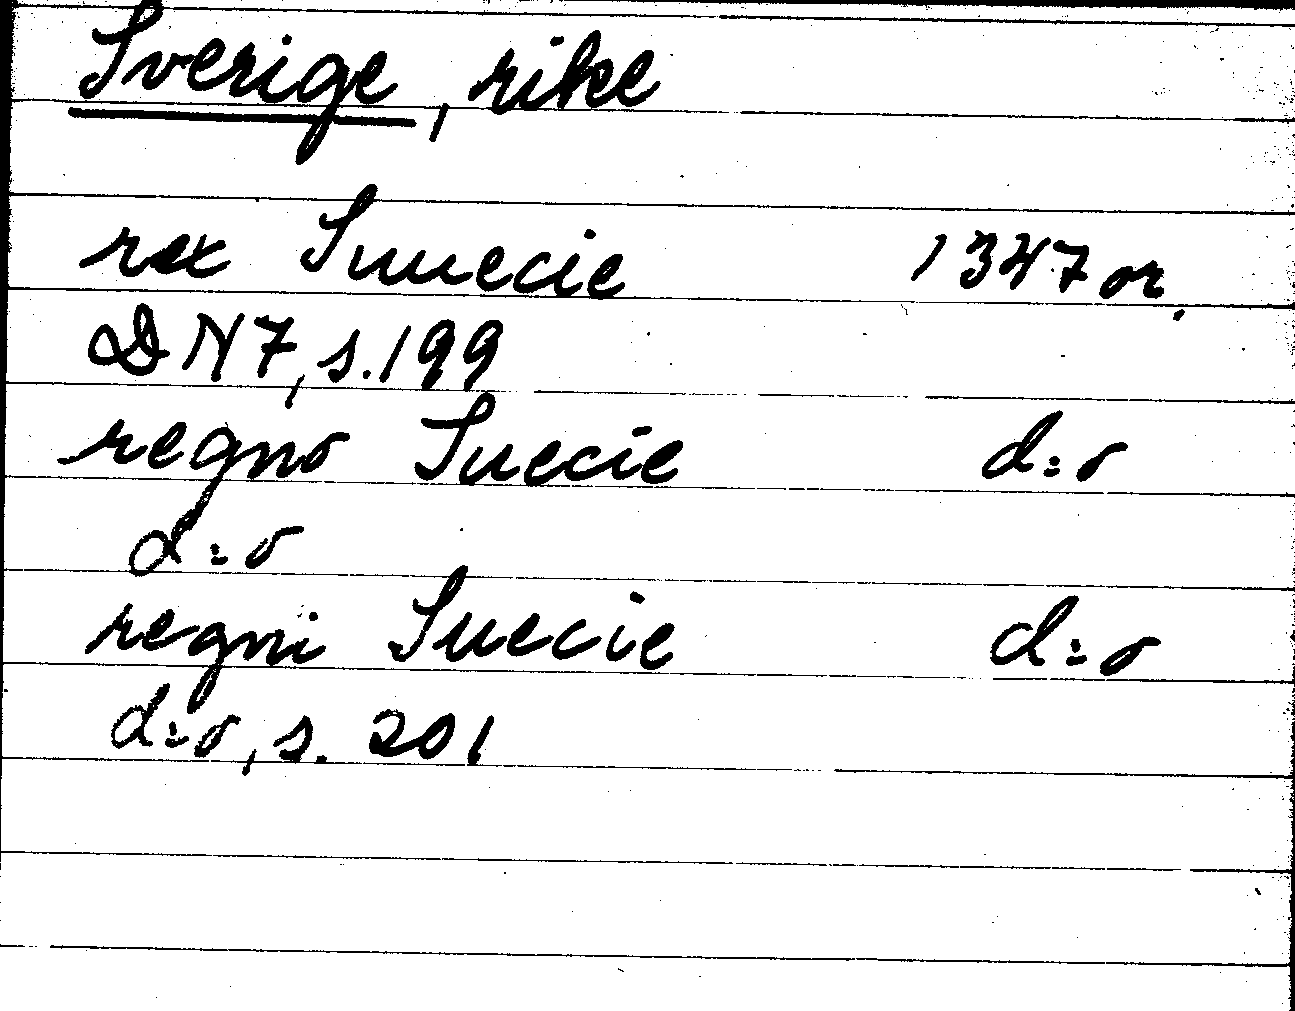 Sverige, rike
rex Suuecie 1347 or.
DN 7, s. 199
regno Suecie d:o
d:o
regni Suecie d:o
d:o, s. 201